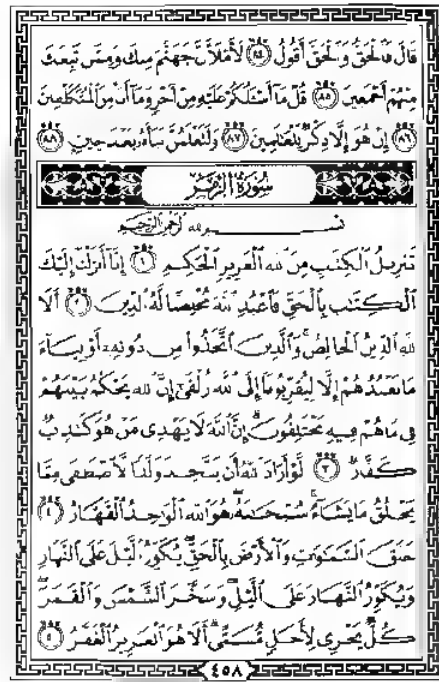 قَالَ فَٱلْحَقُّ وَٱلْحَقَّ أَقُولُ ٨٤ لَأَمْلَأَنَّ جَهَنَّمَ مِنكَ وَمِمَّن تَبِعَكَ
مِنْهُمْ أَجْمَعِينَ ٨٥ قُلْ مَآ أَسْـَٔلُكُمْ عَلَيْهِ مِنْ أَجْرٍ وَمَآ أَنَا۠ مِنَ ٱلْمُتَكَلِّفِينَ
٨٦ إِنْ هُوَ إِلَّا ذِكْرٌ لِّلْعَٰلَمِينَ ٨٧ وَلَتَعْلَمُنَّ نَبَأَهُۥ بَعْدَ حِينٍۭ ٨٨
سُورَةُ الزُّمَرِ
بِسْمِ ٱللَّهِ ٱلرَّحْمَٰنِ ٱلرَّحِيمِ
تَنزِيلُ ٱلْكِتَٰبِ مِنَ ٱللَّهِ ٱلْعَزِيزِ ٱلْحَكِيمِ ١ إِنَّآ أَنزَلْنَآ إِلَيْكَ
ٱلْكِتَٰبَ بِٱلْحَقِّ فَٱعْبُدِ ٱللَّهَ مُخْلِصًا لَّهُ ٱلدِّينَ ٢ أَلَا
لِلَّهِ ٱلدِّينُ ٱلْخَالِصُ ۚ وَٱلَّذِينَ ٱتَّخَذُوا۟ مِن دُونِهِۦٓ أَوْلِيَآءَ
مَا نَعْبُدُهُمْ إِلَّا لِيُقَرِّبُونَآ إِلَى ٱللَّهِ زُلْفَىٰٓ إِنَّ ٱللَّهَ يَحْكُمُ بَيْنَهُمْ
فِى مَا هُمْ فِيهِ يَخْتَلِفُونَ ۗ إِنَّ ٱللَّهَ لَا يَهْدِى مَنْ هُوَ كَٰذِبٌ
كَفَّارٌ ٣ لَّوْ أَرَادَ ٱللَّهُ أَن يَتَّخِذَ وَلَدًا لَّٱصْطَفَىٰ مِمَّا
يَخْلُقُ مَا يَشَآءُ ۚ سُبْحَٰنَهُۥ ۖ هُوَ ٱللَّهُ ٱلْوَٰحِدُ ٱلْقَهَّارُ ٤
خَلَقَ ٱلسَّمَٰوَٰتِ وَٱلْأَرْضَ بِٱلْحَقِّ ۖ يُكَوِّرُ ٱلَّيْلَ عَلَى ٱلنَّهَارِ
وَيُكَوِّرُ ٱلنَّهَارَ عَلَى ٱلَّيْلِ ۖ وَسَخَّرَ ٱلشَّمْسَ وَٱلْقَمَرَ ۖ
كُلٌّ يَجْرِى لِأَجَلٍ مُّسَمًّى ۗ أَلَا هُوَ ٱلْعَزِيزُ ٱلْغَفَّٰرُ ٥
٤٥٨